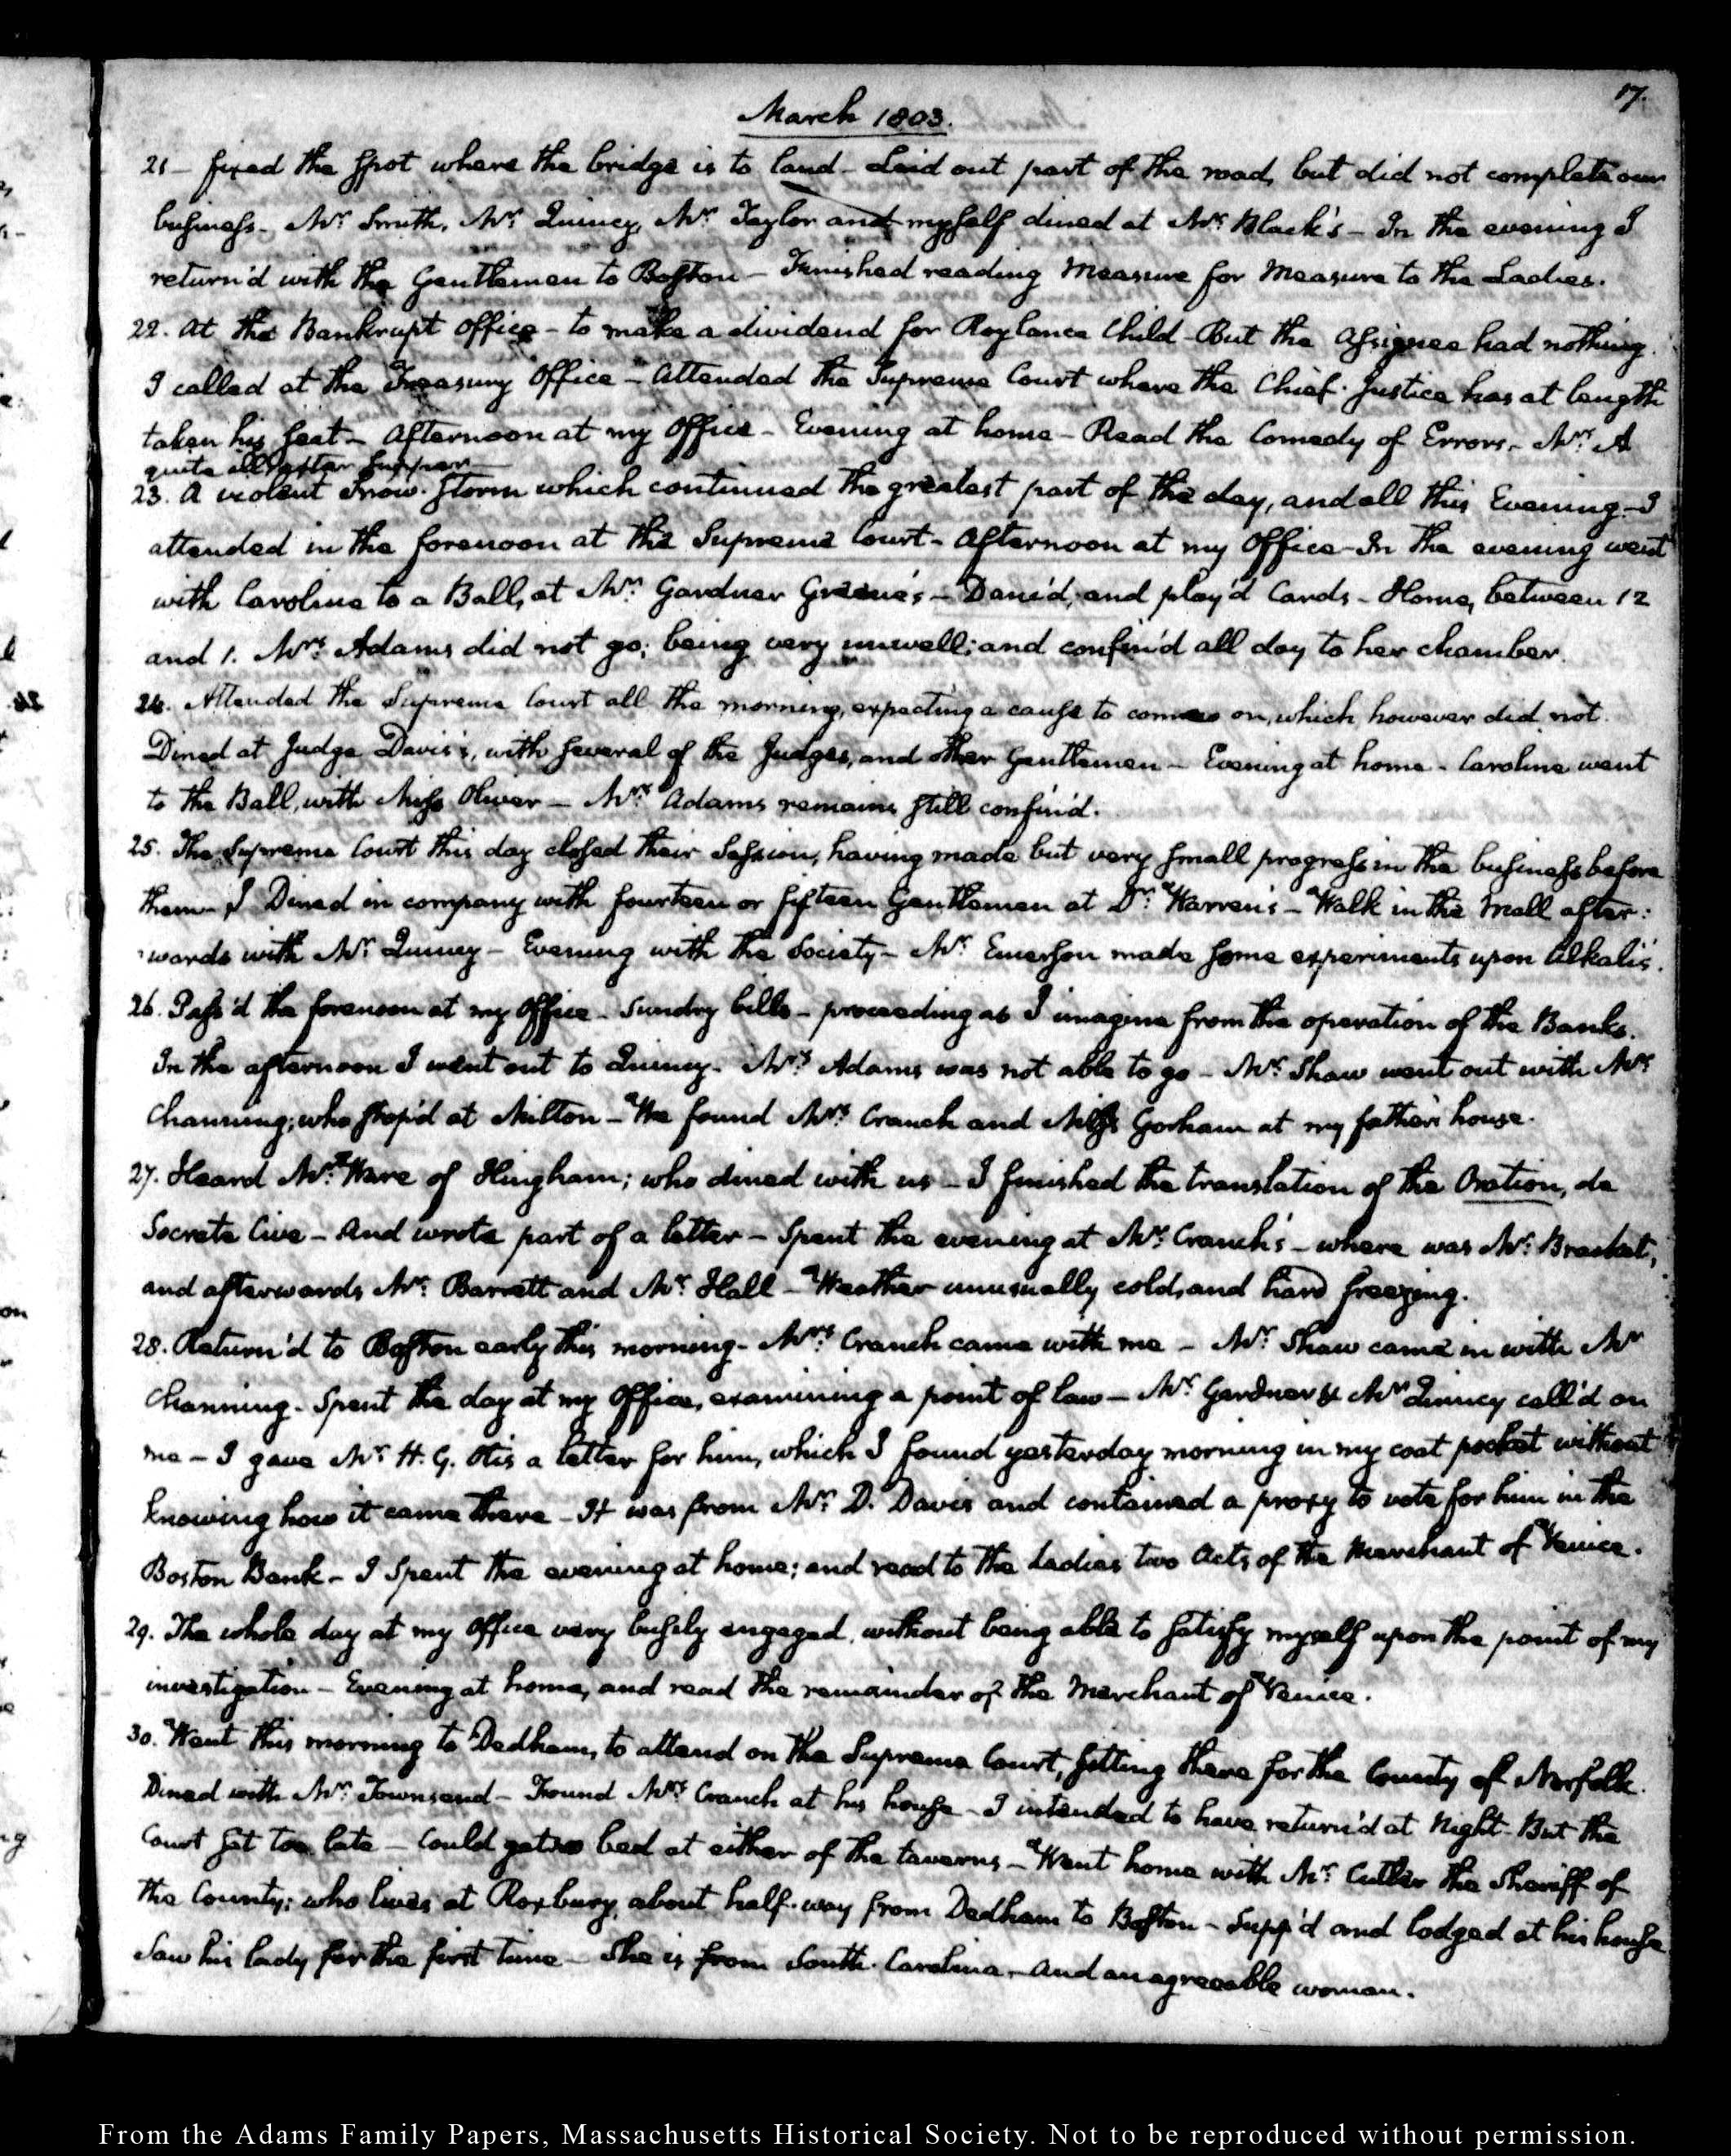 17.
March 1803.
21 — fixed the spot where the bridge is to land — Laid out part of the road, but did not complete our
business. Mr. Smith, Mr. Quincy, Mr. Taylor and myself dined at Mr. Black's — In the evening I
return'd with the Gentlemen to Boston — Finished reading Measure for Measure to the Ladies.
22. At the Bankrupt Office — to make a dividend for Roylance Child — But the Assignee had nothing.
I called at the Treasury Office — Attended the Supreme Court where the Chief-Justice has at length
taken his seat — Afternoon at my Office — Evening at home — Read the Comedy of Errors. Mrs. A
quite ill after supper
23. A violent Snow-storm which continued the greatest part of the day, and all this Evening — I
attended in the forenoon at the Supreme Court — Afternoon at my Office — In the evening went
with Caroline to a Ball, at Mr. Gardner Greene's — Danc'd, and play'd Cards — Home, between 12
and 1. Mrs. Adams did not go; being very unwell; and confin'd all day to her chamber.
24. Attended the Supreme Court all the morning, expecting a cause to come on, which however did not.
Dined at Judge Davis's, with several of the Judges, and other Gentlemen — Evening at home — Caroline went
to the Ball, with Miss Oliver — Mrs. Adams remains still confin'd.
25. The Supreme Court this day closed their Session, having made but very small progress in the business before
them — I Dined in company with fourteen or fifteen Gentlemen at Dr. Warren's — Walk in the Mall after:
wards with Mr. Quincy — Evening with the Society — Mr. Emerson made some experiments upon Alkalis.
26. Pass'd the forenoon at my Office — Sundry bills — proceeding as I imagine from the operation of the Banks.
In the afternoon I went out to Quincy. Mrs. Adams was not able to go — Mr. Shaw went out with Mr.
Channing; who stop'd at Milton — We found Mrs. Cranch and Miss Gorham at my father's house.
27. Heard Mr. Ware of Hingham; who dined with us — I finished the translation of the Oration, de
Socrate Cive — And wrote part of a letter — Spent the evening at Mr. Cranch's — where was Mr. Bracket,
and afterwards Mr. Barrett and Mr. Hall — Weather unusually cold, and hard freezing.
28. Return'd to Boston early this morning — Mrs. Cranch came with me — Mr. Shaw came in with Mr
Channing. Spent the day at my Office, examining a point of law — Mr. Gardner & Mr Quincy call'd on
me — I gave Mr. H. G. Otis a letter for him, which I found yesterday morning in my coat pocket without
knowing how it came there — It was from Mr. D. Davis and contained a proxy to vote for him in the
Boston Bank — I Spent the evening at home; and read to the Ladies two Acts of the Merchant of Venice.
29. The whole day at my Office very busily engaged, without being able to satisfy myself upon the point of my
investigation — Evening at home, and read the remainder of the Merchant of Venice.
30. Went this morning to Dedham, to attend on the Supreme Court, sitting there for the County of Norfolk.
Dined with Mr. Townsend — Found Mrs. Cranch at his house — I intended to have return'd at Night — But the
Court sat too late — Could get no bed at either of the taverns — Went home with Mr. Cutler the Sheriff of
the County; who lives at Roxbury, about half-way from Dedham to Boston — Supp'd and lodged at his house
Saw his lady for the first time — She is from South-Carolina, — And an agreeable woman.
From the Adams Family Papers, Massachusetts Historical Society. Not to be reproduced without permission.